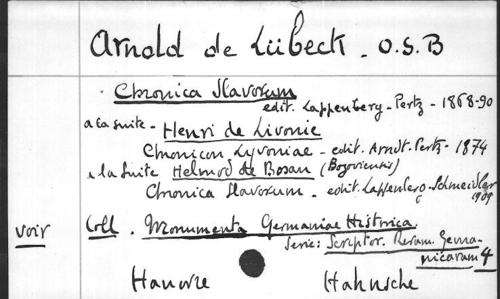 Arnold de Lübeck . O.S.B
Chronica Slavorum
edit. Lappenberg - Pertz - 1868-90
à la suite - Henri de Livonie
Chronicon Lyvoniae - edit. Arndt. Pertz - 1874
à la suite Helmod de Bosan (Bozoviensis)
Chronica Slavorum . edit. Lappenberg - Schmeidler
1909
voir Coll . Monumenta Germaniae Historica
Serie: Scriptor. Rerum Germa-
nicarum 4
Hanovre Hahnsche